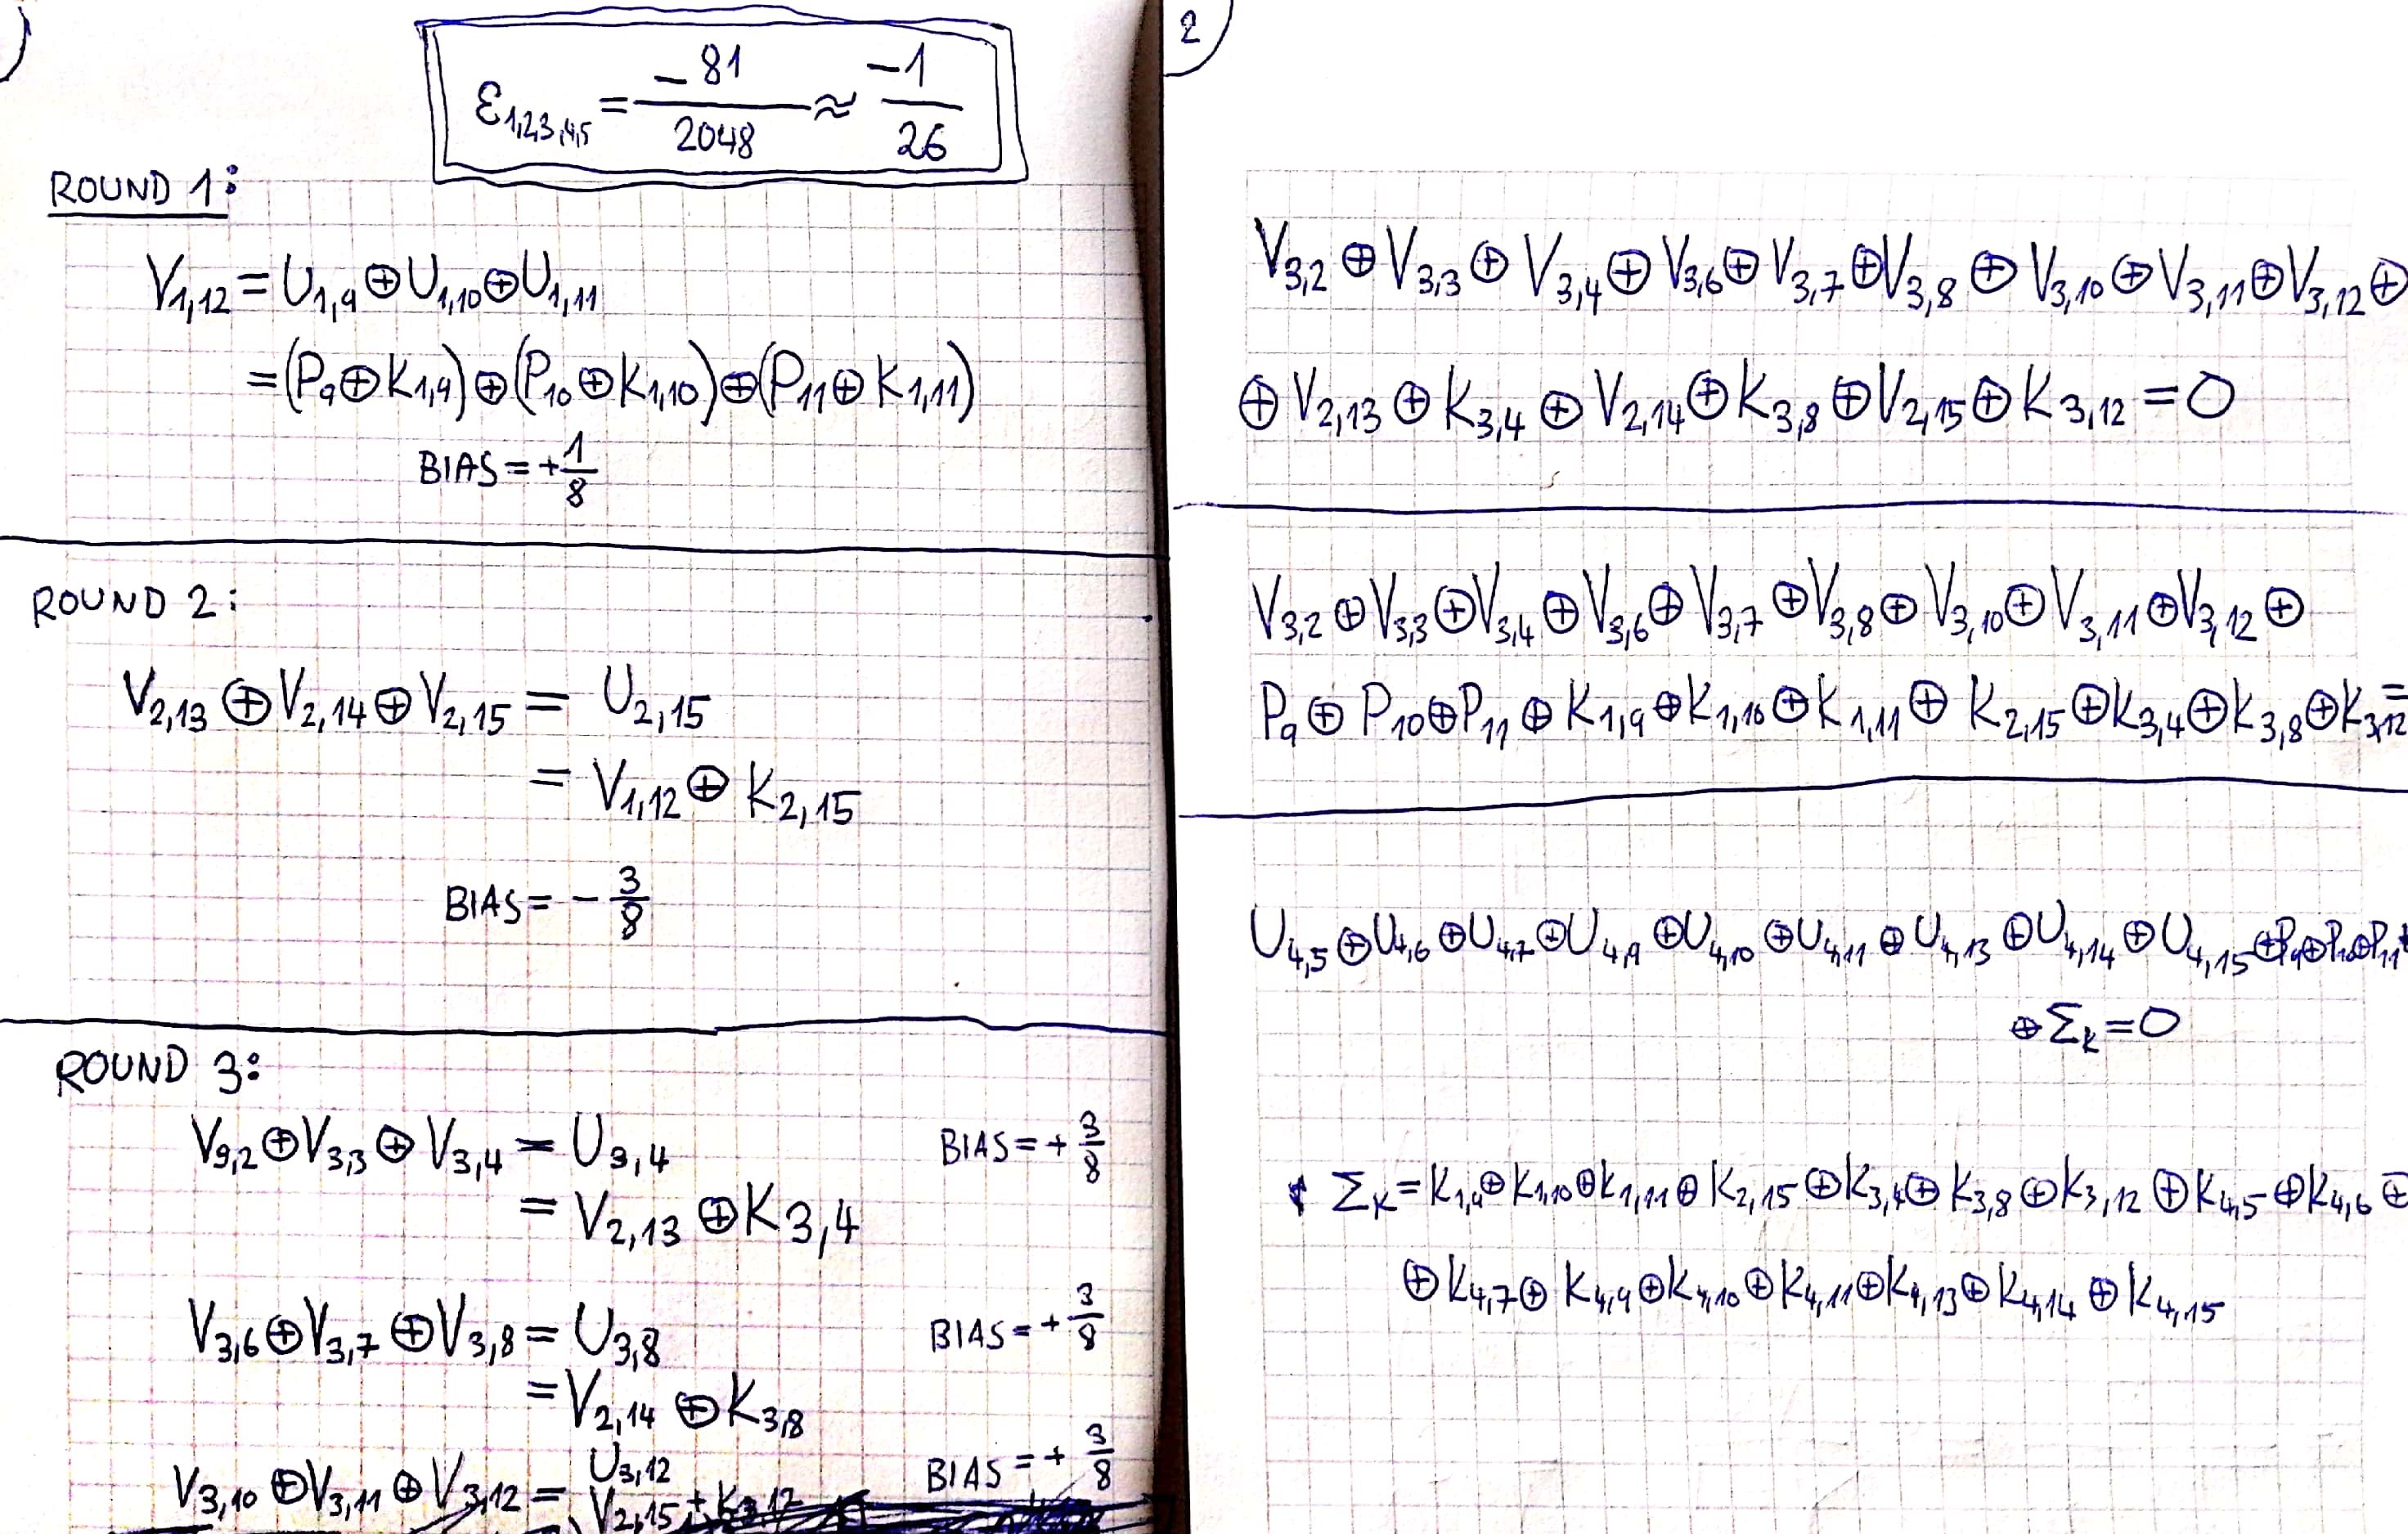 ε₁,₂,₃,₄,₅ = −81/2048 ≈ −1/26
ROUND 1:
V₁,₁₂ = U₁,₉ ⊕ U₁,₁₀ ⊕ U₁,₁₁
= (P₉ ⊕ K₁,₉) ⊕ (P₁₀ ⊕ K₁,₁₀) ⊕ (P₁₁ ⊕ K₁,₁₁)
BIAS = + 1/8
ROUND 2:
V₂,₁₃ ⊕ V₂,₁₄ ⊕ V₂,₁₅ = U₂,₁₅
= V₁,₁₂ ⊕ K₂,₁₅
BIAS = − 3/8
ROUND 3:
V₃,₂ ⊕ V₃,₃ ⊕ V₃,₄ = U₃,₄ BIAS = + 3/8
= V₂,₁₃ ⊕ K₃,₄
V₃,₆ ⊕ V₃,₇ ⊕ V₃,₈ = U₃,₈ BIAS = + 3/8
= V₂,₁₄ ⊕ K₃,₈
V₃,₁₀ ⊕ V₃,₁₁ ⊕ V₃,₁₂ = U₃,₁₂ BIAS = + 3/8
V₂,₁₅ + K₃,₁₂
2
V₃,₂ ⊕ V₃,₃ ⊕ V₃,₄ ⊕ V₃,₆ ⊕ V₃,₇ ⊕ V₃,₈ ⊕ V₃,₁₀ ⊕ V₃,₁₁ ⊕ V₃,₁₂ ⊕
⊕ V₂,₁₃ ⊕ K₃,₄ ⊕ V₂,₁₄ ⊕ K₃,₈ ⊕ V₂,₁₅ ⊕ K₃,₁₂ = 0
V₃,₂ ⊕ V₃,₃ ⊕ V₃,₄ ⊕ V₃,₆ ⊕ V₃,₇ ⊕ V₃,₈ ⊕ V₃,₁₀ ⊕ V₃,₁₁ ⊕ V₃,₁₂ ⊕
P₉ ⊕ P₁₀ ⊕ P₁₁ ⊕ K₁,₉ ⊕ K₁,₁₀ ⊕ K₁,₁₁ ⊕ K₂,₁₅ ⊕ K₃,₄ ⊕ K₃,₈ ⊕ K₃,₁₂ =
U₄,₅ ⊕ U₄,₆ ⊕ U₄,₇ ⊕ U₄,₉ ⊕ U₄,₁₀ ⊕ U₄,₁₁ ⊕ U₄,₁₃ ⊕ U₄,₁₄ ⊕ U₄,₁₅ ⊕ P₉ ⊕ P₁₀ ⊕ P₁₁
⊕ Σₖ = 0
Σₖ = K₁,₉ ⊕ K₁,₁₀ ⊕ K₁,₁₁ ⊕ K₂,₁₅ ⊕ K₃,₄ ⊕ K₃,₈ ⊕ K₃,₁₂ ⊕ K₄,₅ ⊕ K₄,₆ ⊕
⊕ K₄,₇ ⊕ K₄,₉ ⊕ K₄,₁₀ ⊕ K₄,₁₁ ⊕ K₄,₁₃ ⊕ K₄,₁₄ ⊕ K₄,₁₅